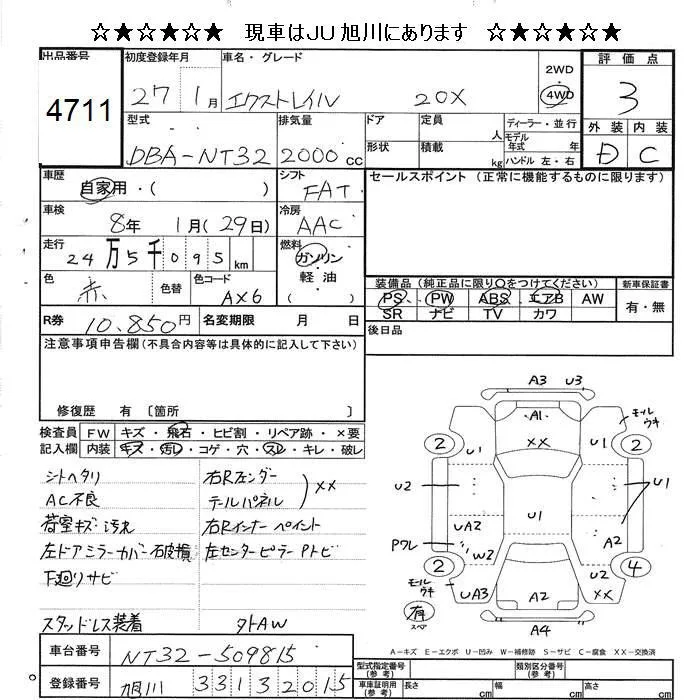 ☆★☆★☆ 現車はJU旭川にあります ☆★☆★☆
出品番号 4711
初度登録年月 27年 1月
車名・グレード エクストレイル 20X
2WD・4WD
評価点 3
外装 D 内装 C
型式 DBA-NT32
排気量 2000cc
ドア 形状
定員 人 積載 kg
ディーラー・並行
モデル年式 年
ハンドル 左・右
車歴 自家用・( )
シフト FAT
セールスポイント (正常に機能するものに限ります)
車検 8年 1月(29日)
冷房 AAC
走行 24万5千095km
燃料 ガソリン・軽油 ( )
色 赤 色替 色コード AX6
装備品 (純正品に限り○をつけてください)
PS・PW・ABS・エアB AW
SR ナビ TV カワ
新車保証書 有・無
R券 10,850円 名変期限 月 日
後日品
注意事項申告欄(不具合内容等は具体的に記入して下さい)
修復歴 有 〔箇所 〕
検査員記入欄
FW キズ・飛石・ヒビ割・リペア跡・×要
内装 キズ・汚れ・コゲ・穴・スレ・キレ・破レ
シートヘタリ
AC不良
荷室キズ・汚れ
左ドアミラーカバー石破損
下廻りサビ
スタッドレス装着 夕トAW
右Rフェンダー
テールパネル ) ××
右Rインナーペイント
左センターピラーPトビ
A3 U3
A1
××
モールウキ
2 U1 U1 2
U2 U1
U1
UA2 A2
Pワレ W2
2 U2 4
モールウキ UA3 A2 ××
有 スペア
A4
A-キズ E-エクボ U-凹み W-補修跡 S-サビ C-腐食 XX-交換済
車台番号 NT32-509815
登録番号 旭川 331 3 2015
型式指定番号(参考) 類別区分番号(参考)
車庫証明用(参考) 長さ cm 幅 cm 高さ cm